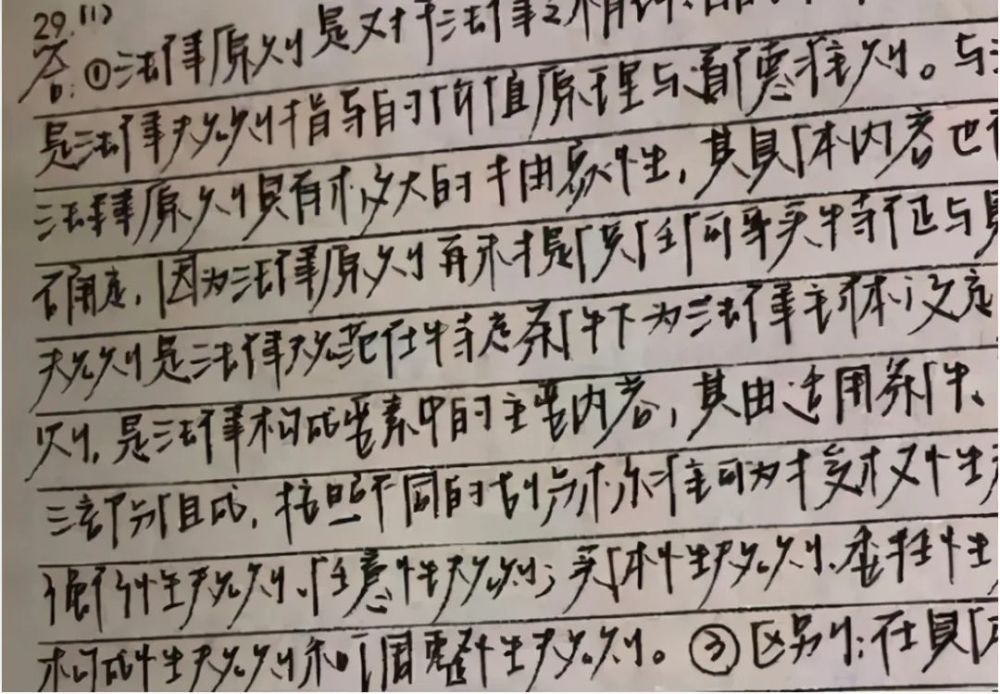 29.(1)
答:①法律原则是对于法律
是法律规则指导的价值原理与道德准则。与
法律原则具有极大的抽象性,其具体内容也
确定,因为法律原则再未提供任何事实特征与
规则是法律规范在特定条件下为法律主体设定
则,是法律构成要素中的主要内容,其由适用条件、
三部分组成,按照不同的划分标准可为授权性
强行性规则、任意性规则;实体性规则、委任性
构成性规则和调整性规则。③区别:在具